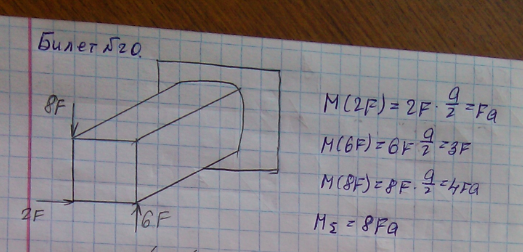 Билет №20.
8F
2F
6F
M(2F)=2F·a/2=Fa
M(6F)=6F·a/2=3F
M(8F)=8F·a/2=4Fa
MΣ=8Fa